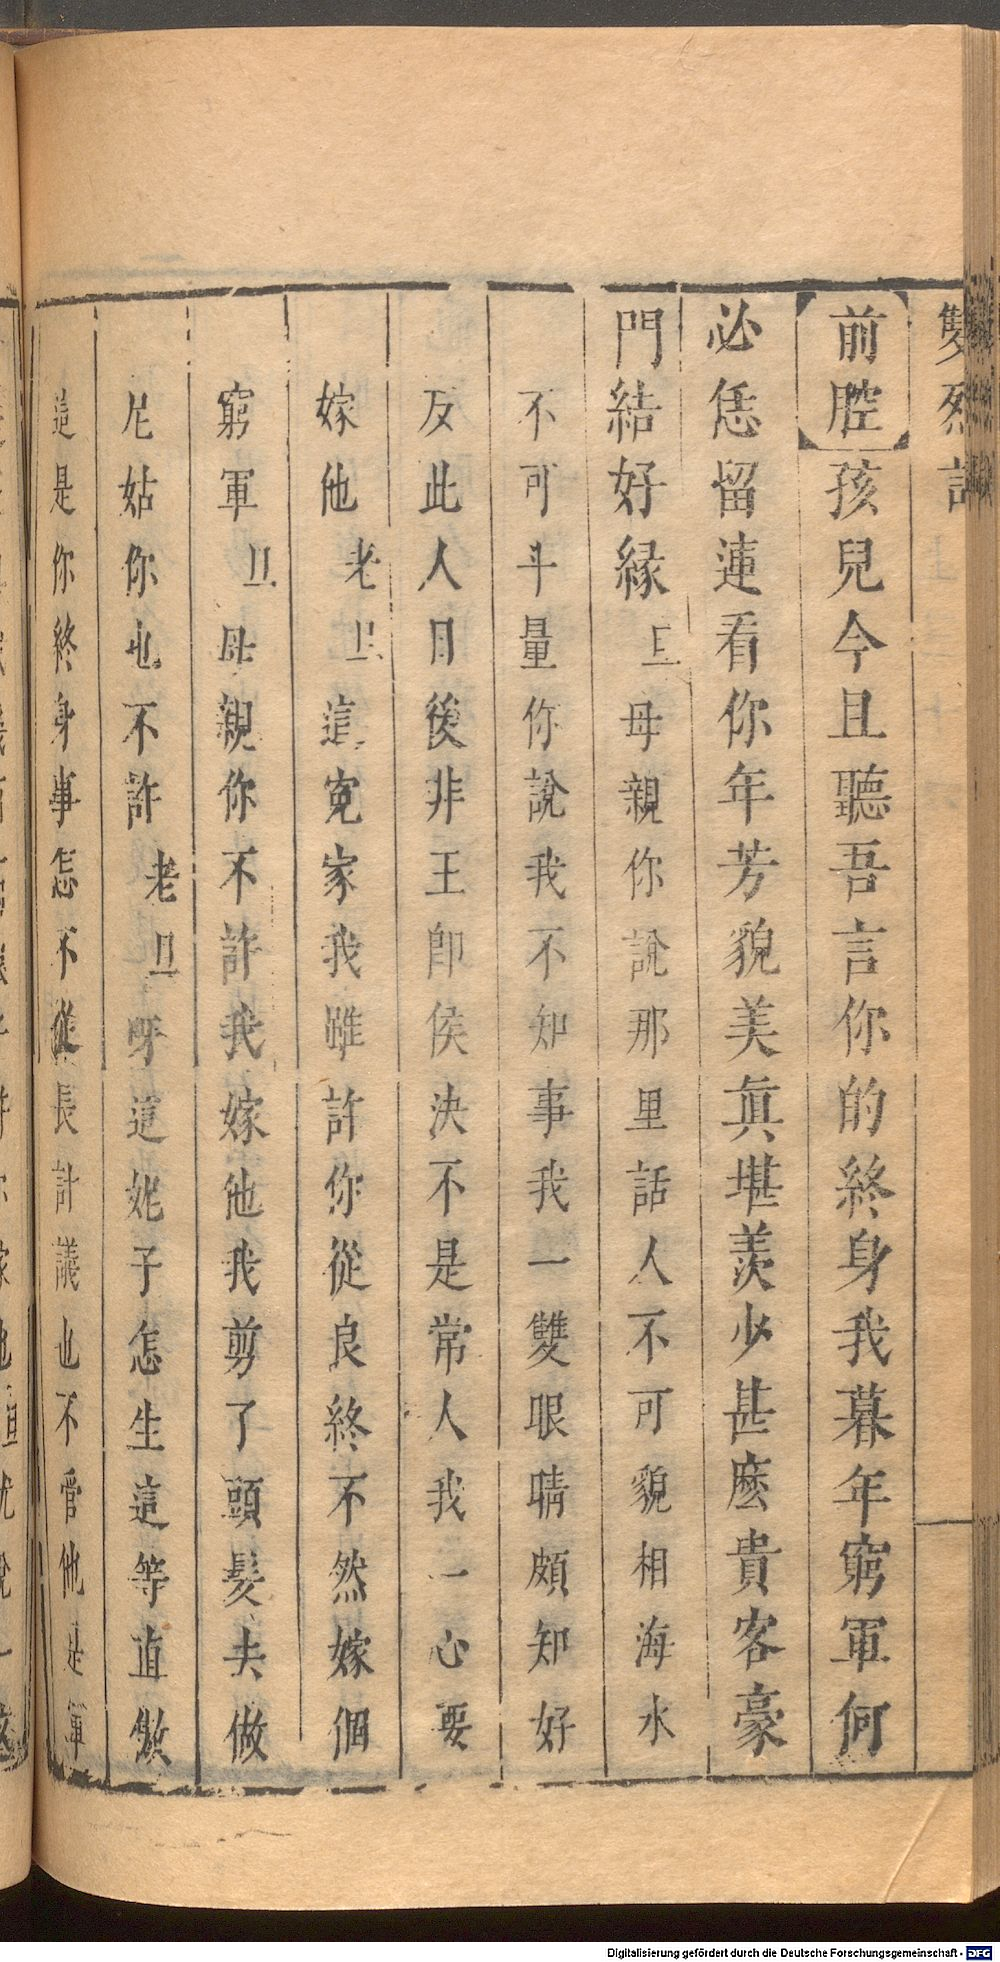 雙烈記
前腔孩兒今且聽吾言你的終身我暮年窮軍何
必恁留連看你年芳貌美眞堪羨少甚麽貴客豪
門結好縁旦母親你說那里話人不可貌相海水
不可斗量你說我不知事我一雙眼睛頗知好
反此人日後非王卽侯決不是常人我一心要
嫁他老旦這寃家我雖許你從良終不然嫁個
窮軍旦母親你不許我嫁他我剪了頭髮去做
尼姑你也不許老旦呀這妮子怎生這等直㒓
這是你終身事怎不從長計議也不管他是軍
Digitalisierung gefördert durch die Deutsche Forschungsgemeinschaft - DFG